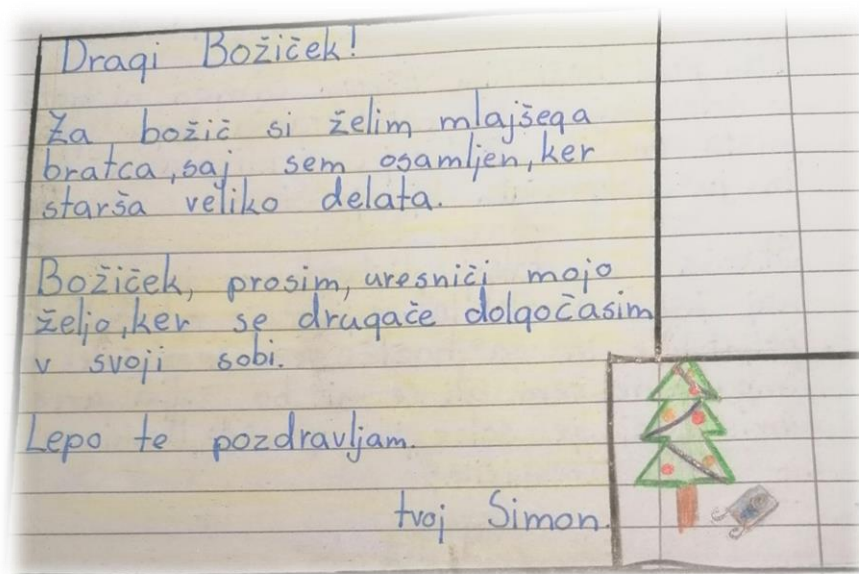 Dragi Božiček!
Za božič si želim mlajšega
bratca, saj sem osamljen, ker
starša veliko delata.
Božiček, prosim, uresniči mojo
željo, ker se drugače dolgočasim
v svoji sobi.
Lepo te pozdravljam.
tvoj Simon.